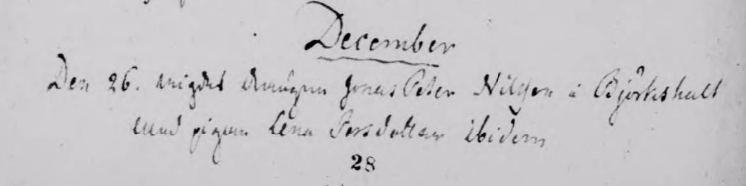 December
Den 26. vigdes Drängen Jonas Peter Nilsson i Björkshult
med pigan Lena Persdotter ibidem
28